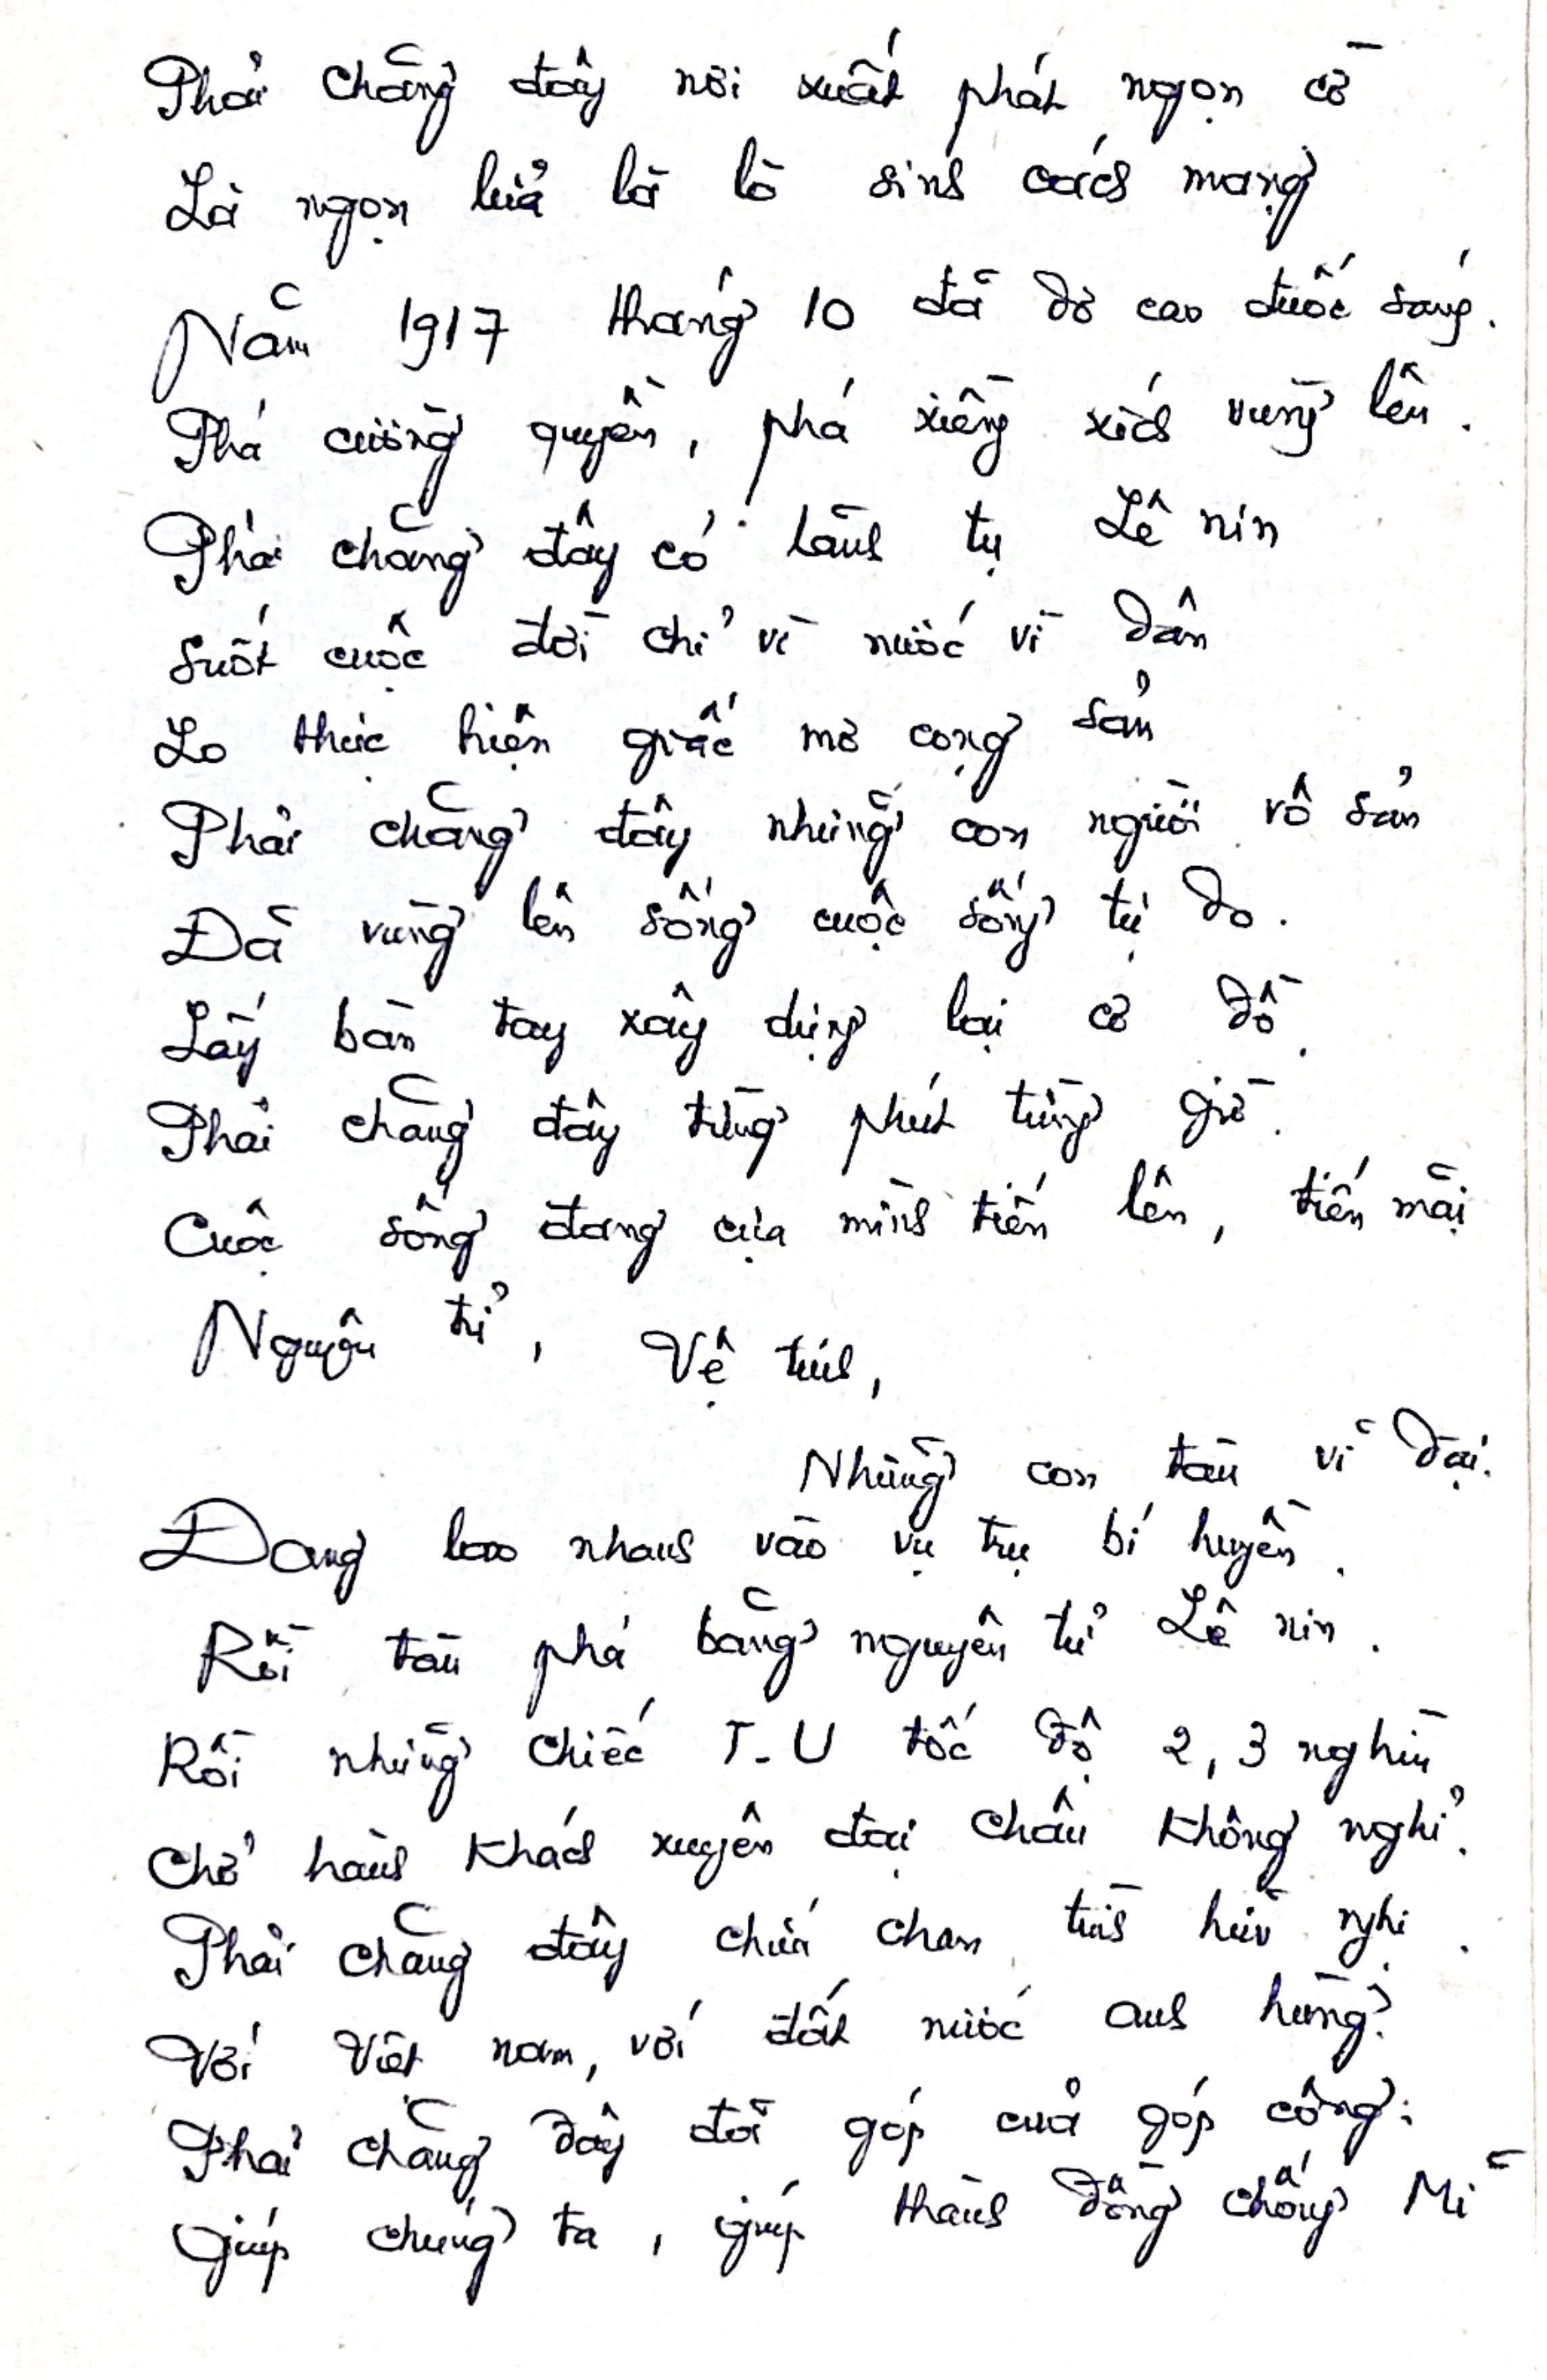 Phải chăng đây nơi xuất phát ngọn cờ
Là ngọn lửa là lò sinh cách mạng
Năm 1917 tháng 10 đã dơ cao đuốc sáng.
Phá cường quyền, phá xiềng xích vùng lên.
Phải chăng đây có lãnh tụ Lê nin
Suốt cuộc đời chỉ vì nước vì dân
Lo thực hiện giấc mơ cộng sản
Phải chăng đây những con người vô sản
Đã vùng lên sống cuộc sống tự do.
Lấy bàn tay xây dựng lại cơ đồ.
Phải chăng đây từng phút từng giờ.
Cuộc sống đang cựa mình tiến lên, tiến mãi
Nguyên tử, Vệ tinh,
Những con tàu vĩ đại.
Đang lao nhanh vào vụ trụ bí huyền.
Rồi tàu phá băng nguyên tử Lê nin.
Rồi những chiếc T-U tốc độ 2, 3 nghìn
Chở hành khách xuyên đại châu không nghỉ.
Phải chăng đây chứa chan tình hữu nghị.
Với Việt nam, với đất nước anh hùng?
Phải chăng đây đã góp của góp công:
Giúp chúng ta, giúp thành đồng chống Mĩ